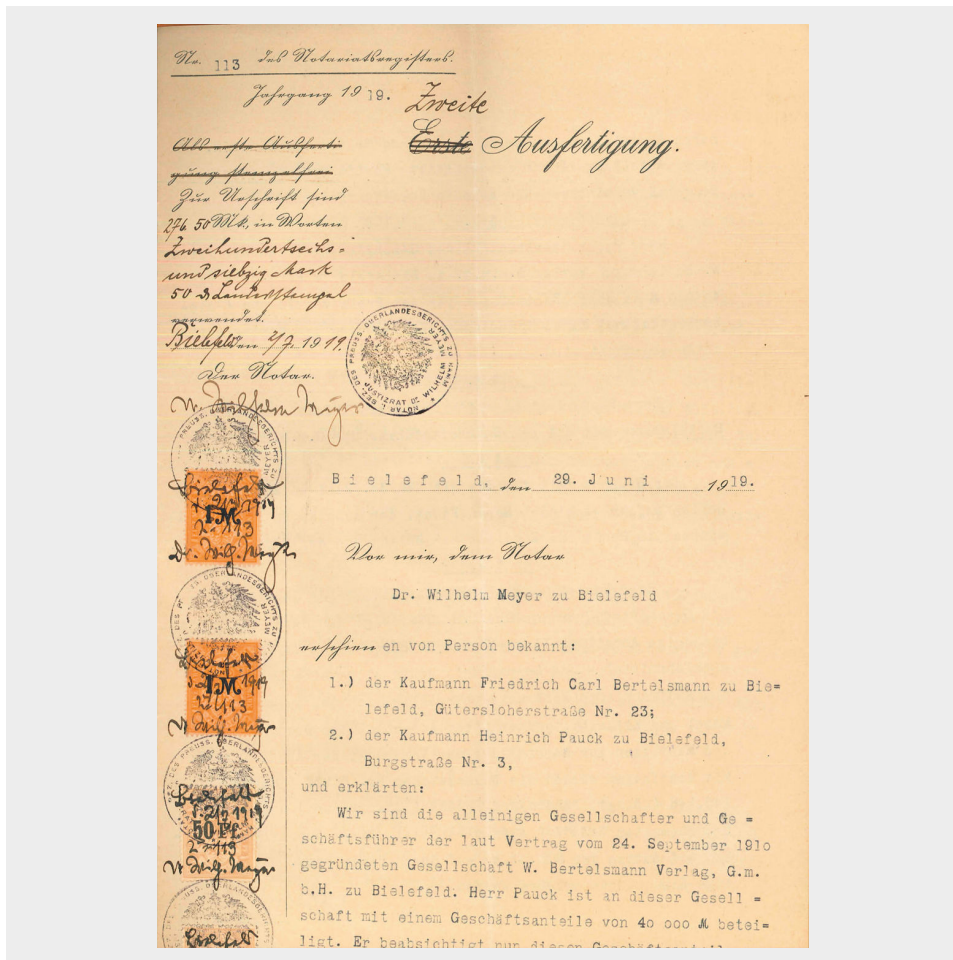 Nr. 113 des Notariatsregisters.
Jahrgang 1919.
Zweite
Erste Ausfertigung.
Als erste Ausferti
gung stempelfrei
Zur Urschrift sind
276.50 Mk., in Worten
Zweihundertsechs-
und siebzig Mark
50 Landesstempel
verwendet.
Bielefeld den 2/7. 1919.
Der Notar.
Dr. Wilhelm Meyer
NOTAR I. BEZ. DES PREUSS. OBERLANDESGERICHTS ZU HAMM
JUSTIZRAT DR WILHELM MEYER
Bielefeld, den 29. Juni 1919.
Vor mir, dem Notar
Dr. Wilhelm Meyer zu Bielefeld
erschienen von Person bekannt:
1.) der Kaufmann Friedrich Carl Bertelsmann zu Bie=
lefeld, Gütersloherstraße Nr. 23;
2.) der Kaufmann Heinrich Pauck zu Bielefeld,
Burgstraße Nr. 3,
und erklärten:
Wir sind die alleinigen Gesellschafter und Ge =
schäftsführer der laut Vertrag vom 24. September 1910
gegründeten Gesellschaft W. Bertelsmann Verlag, G.m.
b.H. zu Bielefeld. Herr Pauck ist an dieser Gesell =
schaft mit einem Geschäftsanteile von 40 000 M betei=
ligt. Er beabsichtigt nun diesen Geschäftsanteil
Bielefeld
1 M
113
Dr. Wilh. Meyer
Bielefeld
1 M
113
Dr. Wilh. Meyer
Bielefeld
50 Pf.
113
Dr. Wilh. Meyer
Bielefeld